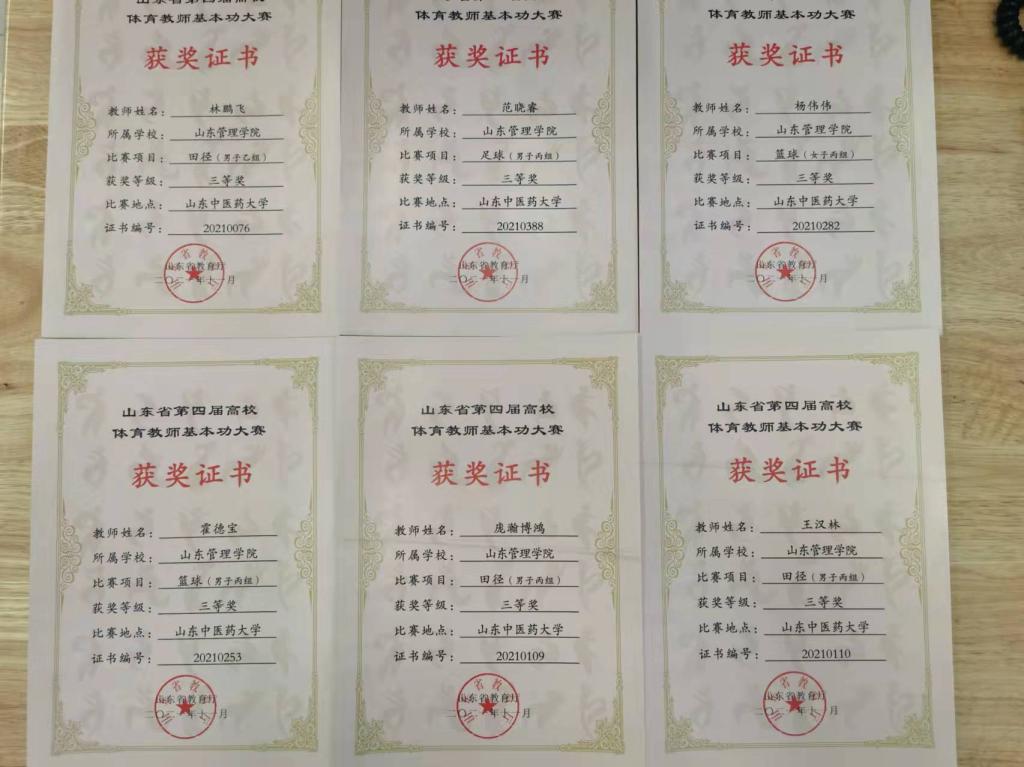 山东省第四届高校
体育教师基本功大赛
获奖证书
教师姓名：林鹏飞
所属学校：山东管理学院
比赛项目：田径（男子乙组）
获奖等级：三等奖
比赛地点：山东中医药大学
证书编号：20210076
山东省教育厅
体育教师基本功大赛
获奖证书
教师姓名：范晓睿
所属学校：山东管理学院
比赛项目：足球（男子丙组）
获奖等级：三等奖
比赛地点：山东中医药大学
证书编号：20210388
山东省教育厅
体育教师基本功大赛
获奖证书
教师姓名：杨伟伟
所属学校：山东管理学院
比赛项目：篮球（女子丙组）
获奖等级：三等奖
比赛地点：山东中医药大学
证书编号：20210282
山东省教育厅
山东省第四届高校
体育教师基本功大赛
获奖证书
教师姓名：霍德宝
所属学校：山东管理学院
比赛项目：篮球（男子丙组）
获奖等级：三等奖
比赛地点：山东中医药大学
证书编号：20210253
山东省教育厅
山东省第四届高校
体育教师基本功大赛
获奖证书
教师姓名：庞瀚博鸿
所属学校：山东管理学院
比赛项目：田径（男子丙组）
获奖等级：三等奖
比赛地点：山东中医药大学
证书编号：20210109
山东省教育厅
山东省第四届高校
体育教师基本功大赛
获奖证书
教师姓名：王汉林
所属学校：山东管理学院
比赛项目：田径（男子丙组）
获奖等级：三等奖
比赛地点：山东中医药大学
证书编号：20210110
山东省教育厅